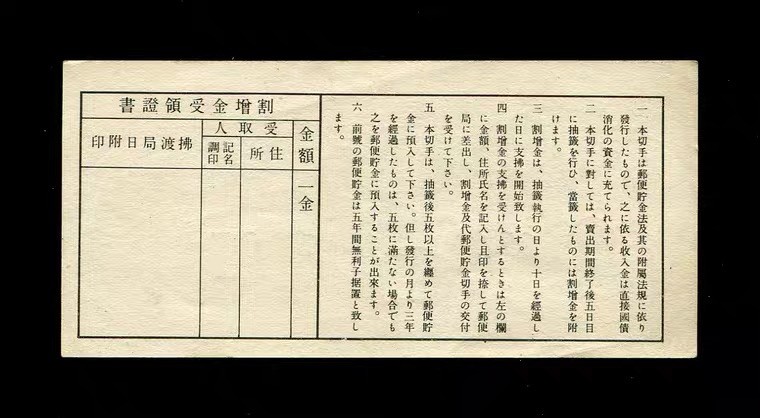 一 本切手は郵便貯金法及其の附屬法規に依り
發行したもので、之に依る收入金は直接國債
消化の資金に充てられます。
二 本切手に對しては、賣出期間終了後五日目
に抽籤を行ひ、當籤したものには割增金を附
けます。
三 割增金は、抽籤執行の日より十日を經過し
た日に支拂を開始致します。
四 割增金の支拂を受けんとするときは左の欄
に金額、住所氏名を記入し且印を捺して郵便
局に差出し、割增金及代郵便貯金切手の交付
を受けて下さい。
五 本切手は、抽籤後五枚以上を纏めて郵便貯
金に預入して下さい。但し發行の月より三年
を經過したものは、五枚に滿たない場合でも
之を郵便貯金に預入することが出來ます。
六 前號の郵便貯金は五年間無利子据置と致し
ます。
割增金受領證書
金額
一金
受取人
住所
記名調印
拂渡局日附印